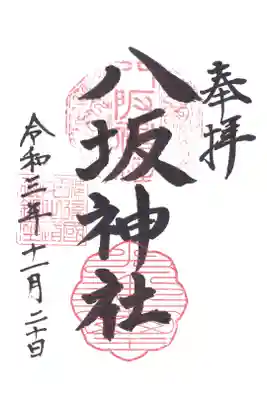 奉拝
八坂神社
令和三年十一月二十日